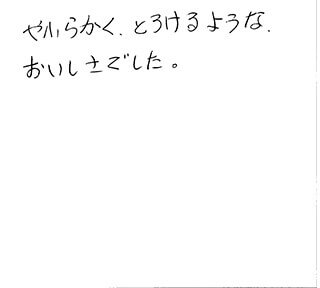 やわらかく、とろけるような、
おいしさでした。